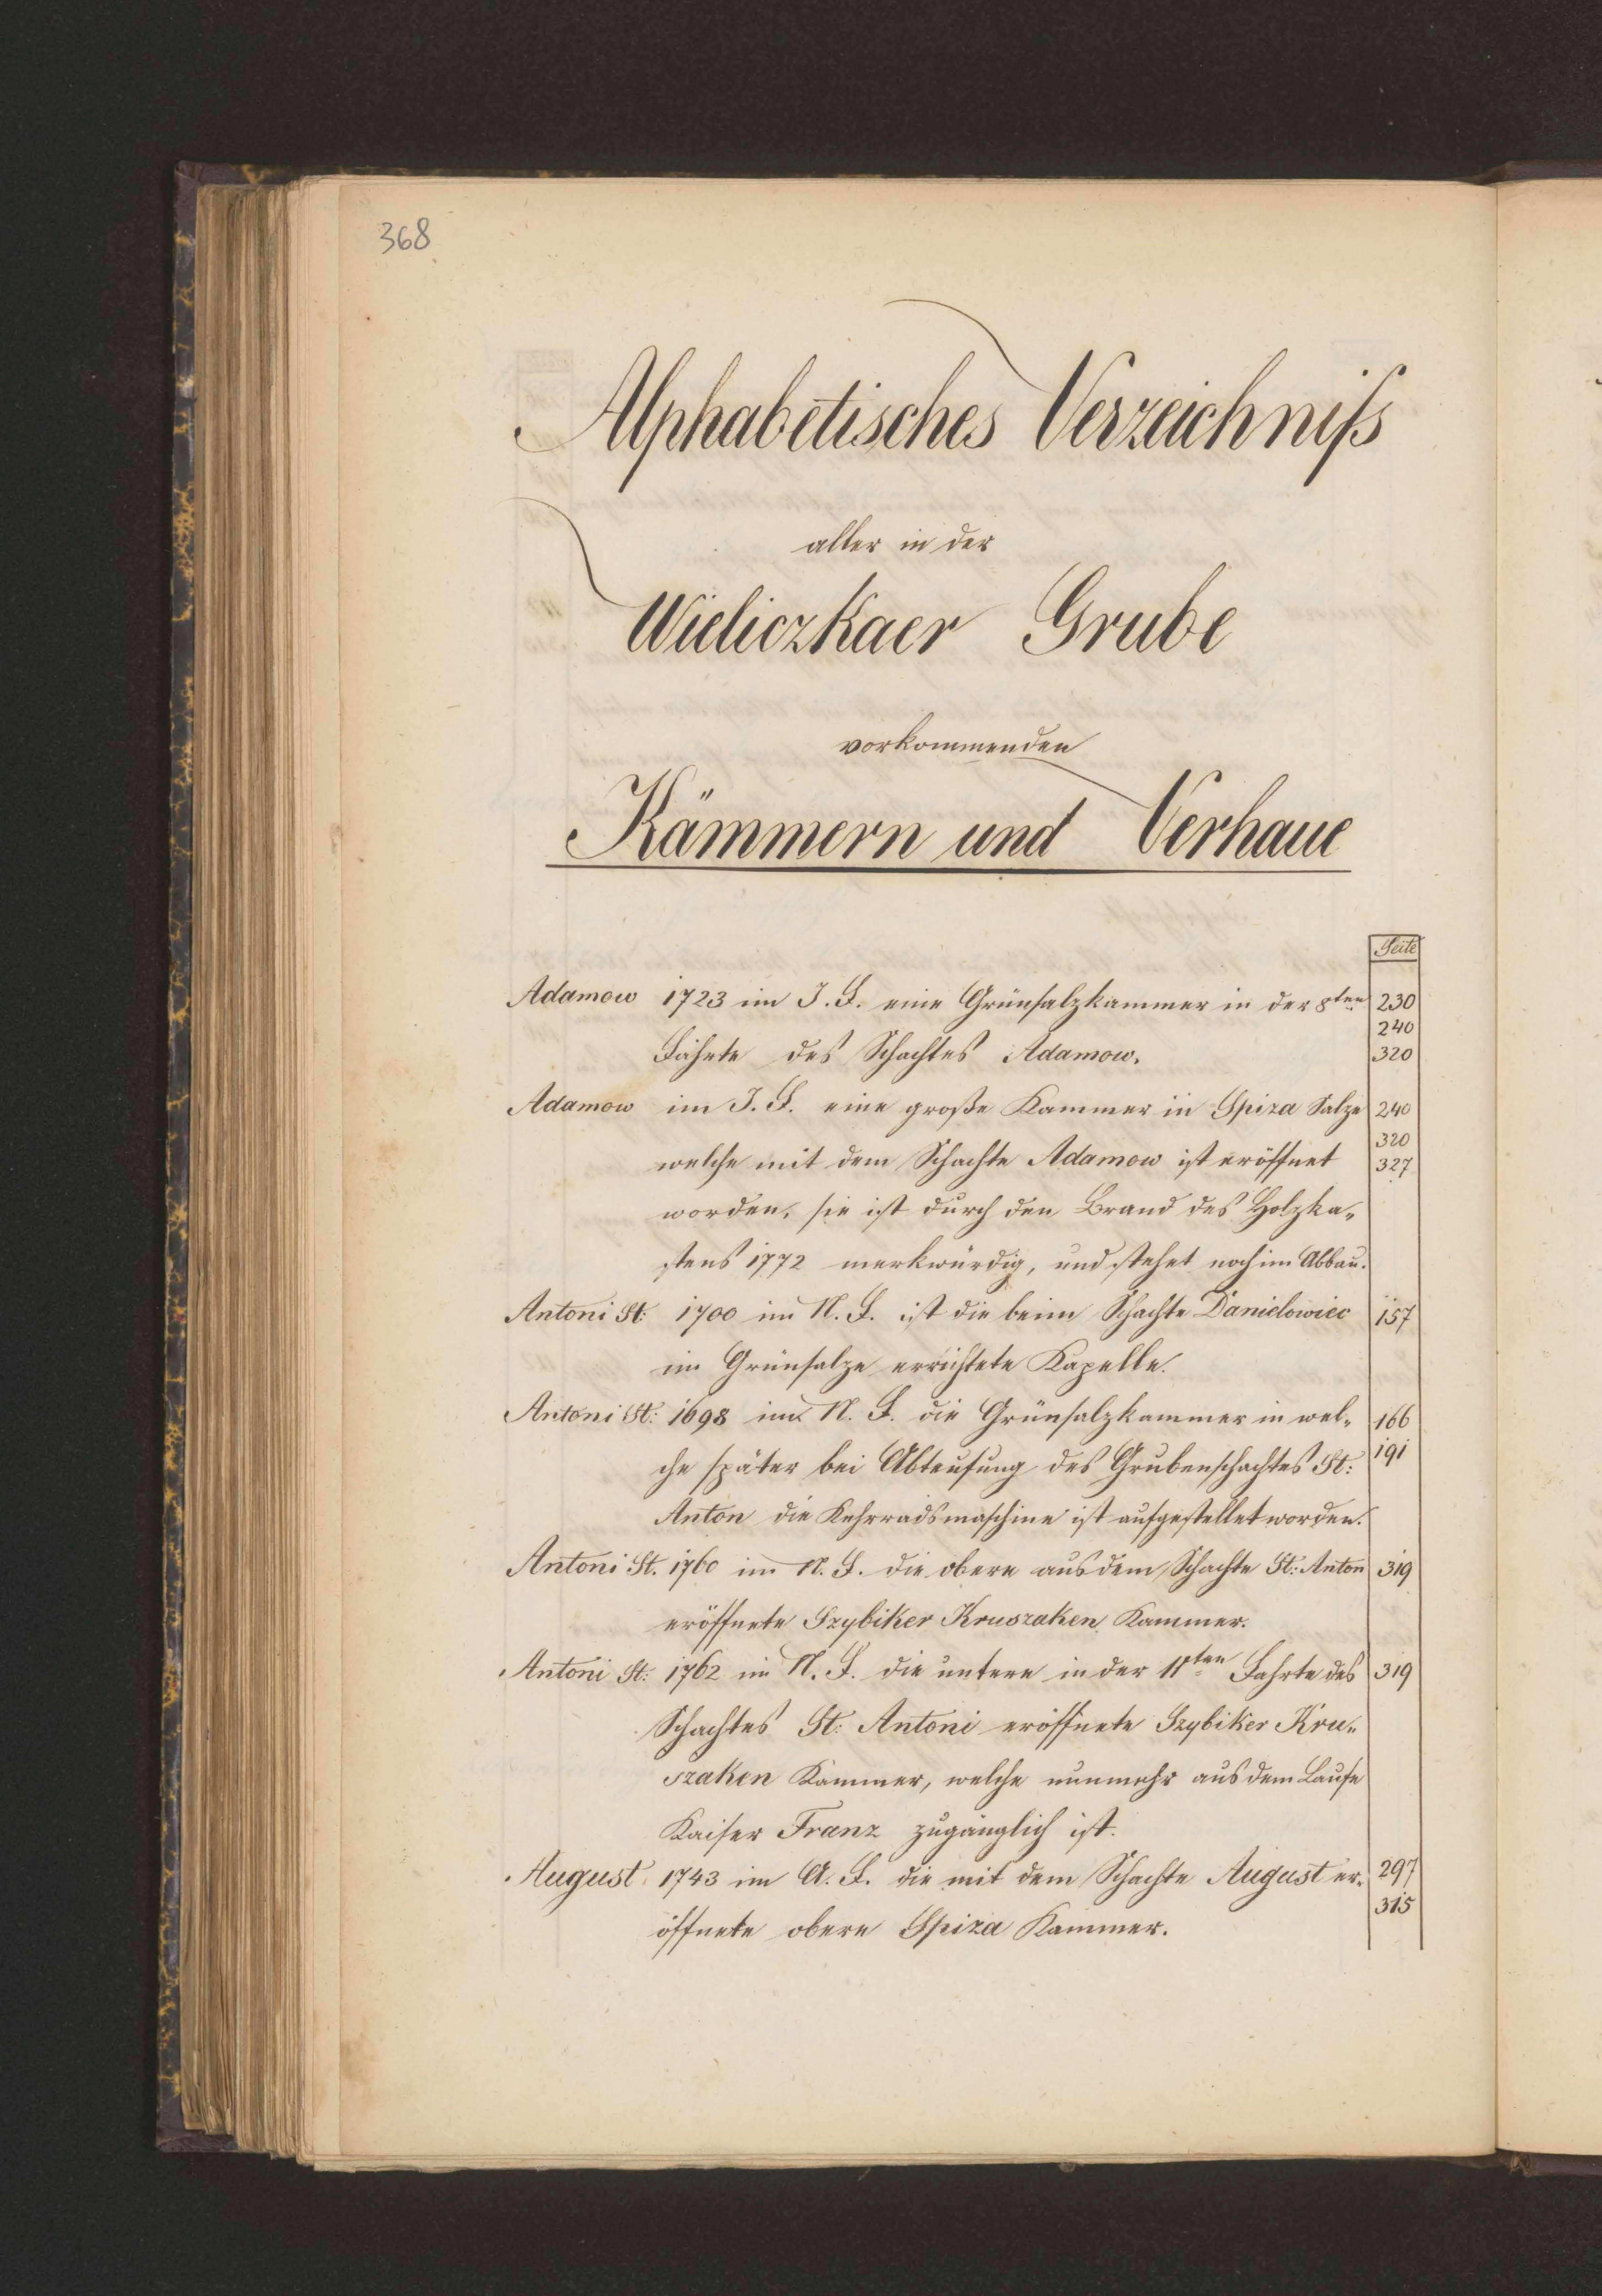 368
Alphabetisches Verzeichniſs
aller in der
Wieliczkaer Grube
vorkommenden
Kämmern und Verhaue
Seite
Adamow 1723 im J. F. eine Grünsalzkammer in der 8ten 230
240
Fahrte des Schachtes Adamow. 320
Adamow im J. F. eine große Kammer in Spiza Salze 240
320
welche mit dem Schachte Adamow ist eröffnet 327
worden, sie ist durch den Brand des Holzka„
stens 1772 merkwürdig, und stehet noch im Abbau.
Antoni St: 1700 im N. F. ist die beim Schachte Danielowiec 157
im Grünsalze errichtete Kapelle.
Antoni St: 1698 im N. F. die Grünsalzkammer in wel„ 166
che später bei Abteufung des Grubenschachtes St: 191
Anton die Kehrradsmaschine ist aufgestellet worden.
Antoni St. 1760 im N. F. die obere aus dem Schachte St: Anton 319
eröffnete Szybiker Kruszaken Kammer.
Antoni St: 1762 im N. F. die untere in der 11ten Fahrte des 319
Schachtes St: Antoni eröffnete Szybiker Kru„
szaken Kammer, welche nunmehr aus dem Laufe
Kaiser Franz zugänglich ist.
August 1743 im A. F. die mit dem Schachte August er„ 297
315
öffnete obere Spiza Kammer.